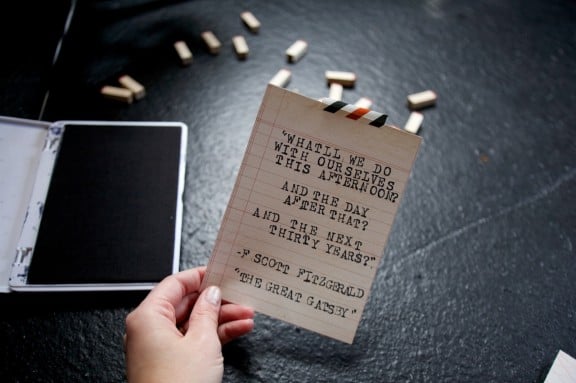 "WHAT'LL WE DO
WITH OURSELVES
THIS AFTERNOON?
AND THE DAY
AFTER THAT?
AND THE NEXT
THIRTY YEARS?"
-F SCOTT FITZGERALD
"THE GREAT GATSBY"